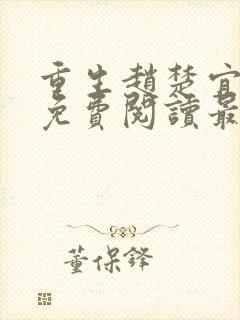 重生趙楚宜
免費閱讀最
董保鋒